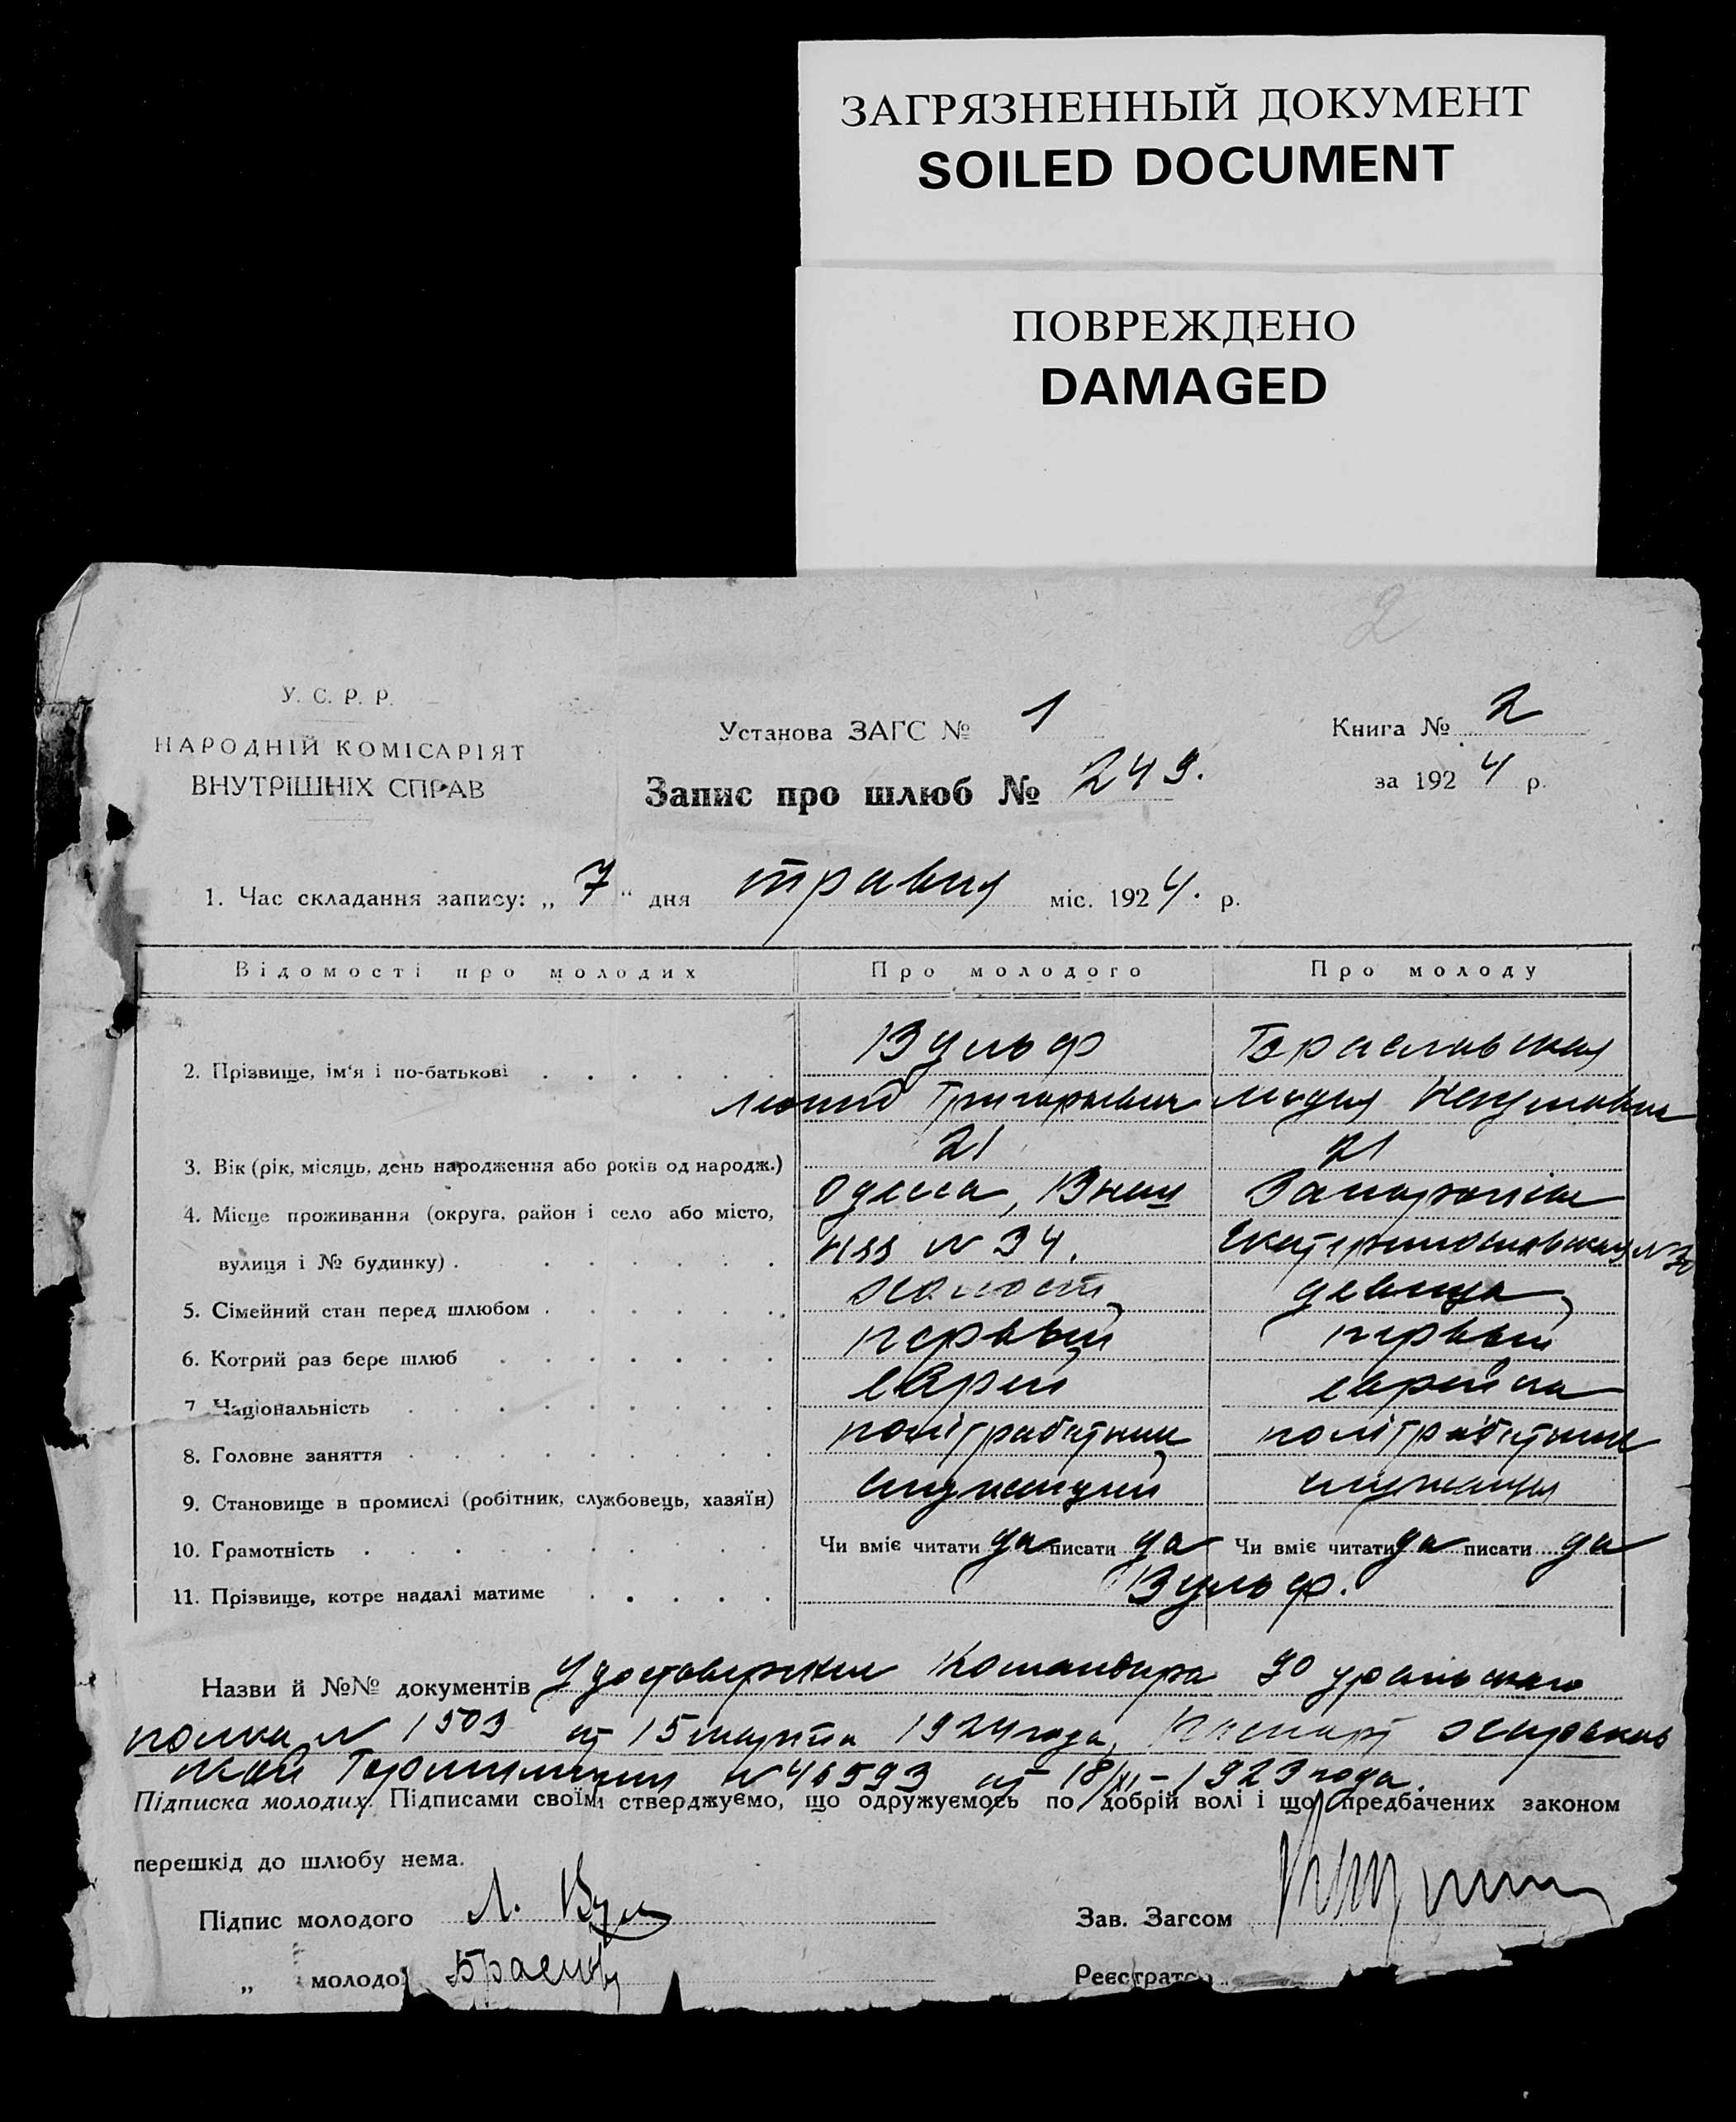 ЗАГРЯЗНЕННЫЙ ДОКУМЕНТ
SOILED DOCUMENT
ПОВРЕЖДЕНО
DAMAGED
2
У. С. Р. Р.
НАРОДНІЙ КОМІСАРІЯТ
ВНУТРІШНІХ СПРАВ
Установа ЗАГС № 1
Книга № 2
Запис про шлюб № 249.
за 1924 р.
1. Час складання запису: „7“ дня травня міс. 1924. р.
Відомості про молодих Про молодого Про молоду
2. Прізвище, ім'я і по-батькові Вульф
Григорьевич Лидия
3. Вік (рік, місяць, день народження або років од народж.) 21 21
4. Місце проживання (округа, район і село або місто, Одесса,
вулиця і № будинку) N 34. Екатеринославская N 30
5. Сімейний стан перед шлюбом холост девица
6. Котрий раз бере шлюб первый первый
7. Національність еврей еврейка
8. Головне заняття политработник политработник
9. Становище в промислі (робітник, службовець, хазяїн) служащий служащая
10. Грамотність Чи вміє читати да писати да Чи вміє читати да писати да
11. Прізвище, котре надалі матиме Вульф.
Назви й №№ документів Удостоверение Командира 90 уральского
полка N 1503 от 15 марта 1924 года,
N 46593 от 18/XI-1923 года.
Підписка молодих. Підписами своїми стверджуємо, що одружуємось по добрій волі і що предбачених законом
перешкід до шлюбу нема.
Підпис молодого Л. Вул
Зав. Загсом
„ молодо
Реєстрато